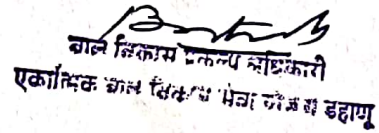 बाल विकास प्रकल्प अधिकारी
एकात्मिक बाल विकास सेवा योजना डहाणू